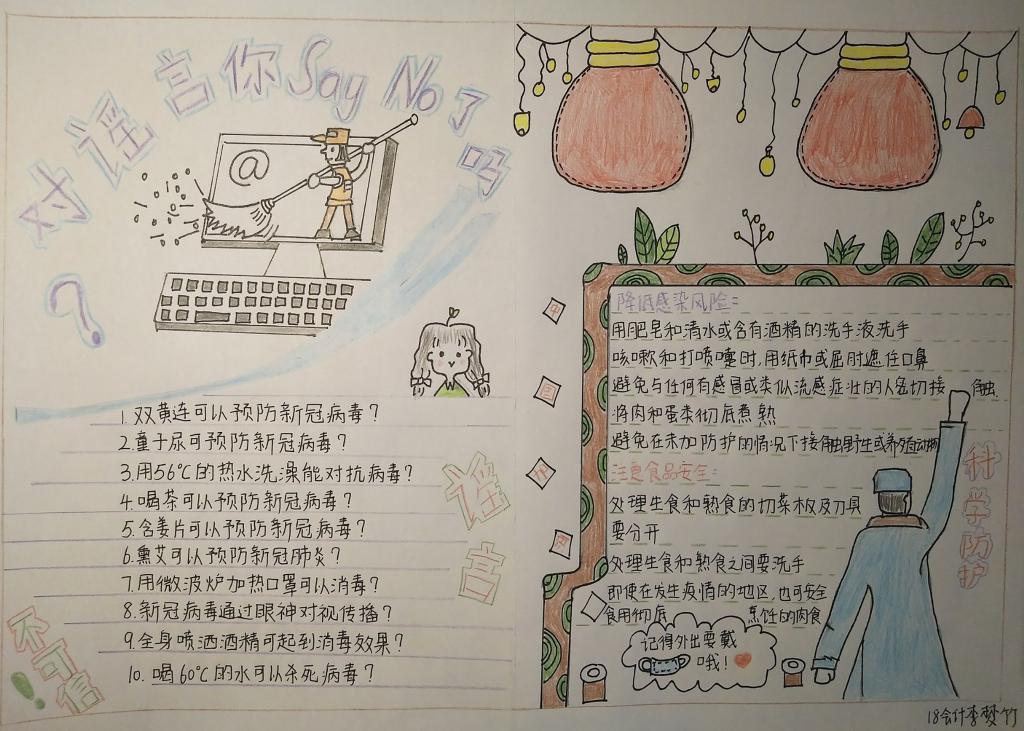 对谣言你Say No了吗?
1. 双黄连可以预防新冠病毒?
2. 童子尿可预防新冠病毒?
3. 用56℃的热水洗澡能对抗病毒?
4. 喝茶可以预防新冠病毒?
5. 含姜片可以预防新冠病毒?
6. 熏艾可以预防新冠肺炎?
7. 用微波炉加热口罩可以消毒?
8. 新冠病毒通过眼神对视传播?
9. 全身喷洒酒精可起到消毒效果?
10. 喝60℃的水可以杀死病毒?
谣言
不可信!
@
中
国
加
油
降低感染风险:
用肥皂和清水或含有酒精的洗手液洗手
咳嗽和打喷嚏时,用纸巾或屈肘遮住口鼻
避免与任何有感冒或类似流感症状的人密切接触.
将肉和蛋类彻底煮熟
避免在未加防护的情况下接触野生或养殖动物
注意食品安全:
处理生食和熟食的切菜板及刀具
要分开
处理生食和熟食之间要洗手
即使在发生疫情的地区,也可安全
食用彻底 烹饪的肉食
科学防护
记得外出要戴
哦!
18会计李梦竹